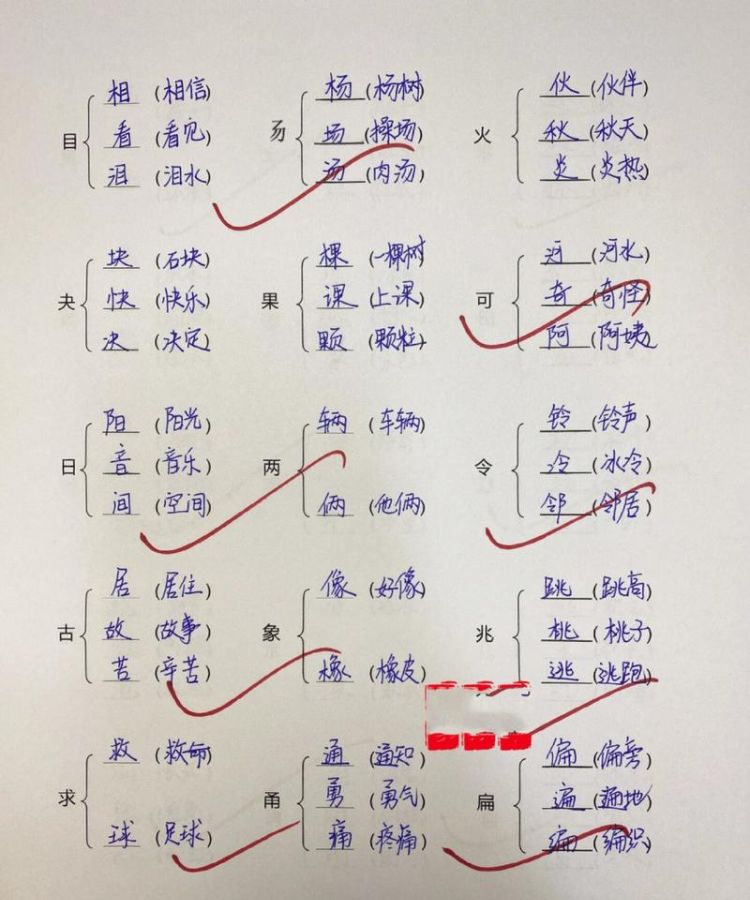 相 (相信) 杨 (杨树) 伙 (伙伴)
目 看 (看见) 𠃓 场 (操场) 火 秋 (秋天)
泪 (泪水) 汤 (肉汤) 炎 (炎热)
块 (石块) 棵 (一棵树) 河 (河水)
夬 快 (快乐) 果 课 (上课) 可 奇 (奇怪)
决 (决定) 颗 (颗粒) 阿 (阿姨)
阳 (阳光) 辆 (车辆) 铃 (铃声)
日 音 (音乐) 两 令 冷 (冰冷)
间 (空间) 俩 (他俩) 邻 (邻居)
居 (居住) 像 (好像) 跳 (跳高)
古 故 (故事) 象 兆 桃 (桃子)
苦 (辛苦) 橡 (橡皮) 逃 (逃跑)
救 (救命) 通 (通知) 偏 (偏旁)
求 甬 勇 (勇气) 扁 遍 (遍地)
球 (足球) 痛 (疼痛) 编 (编织)